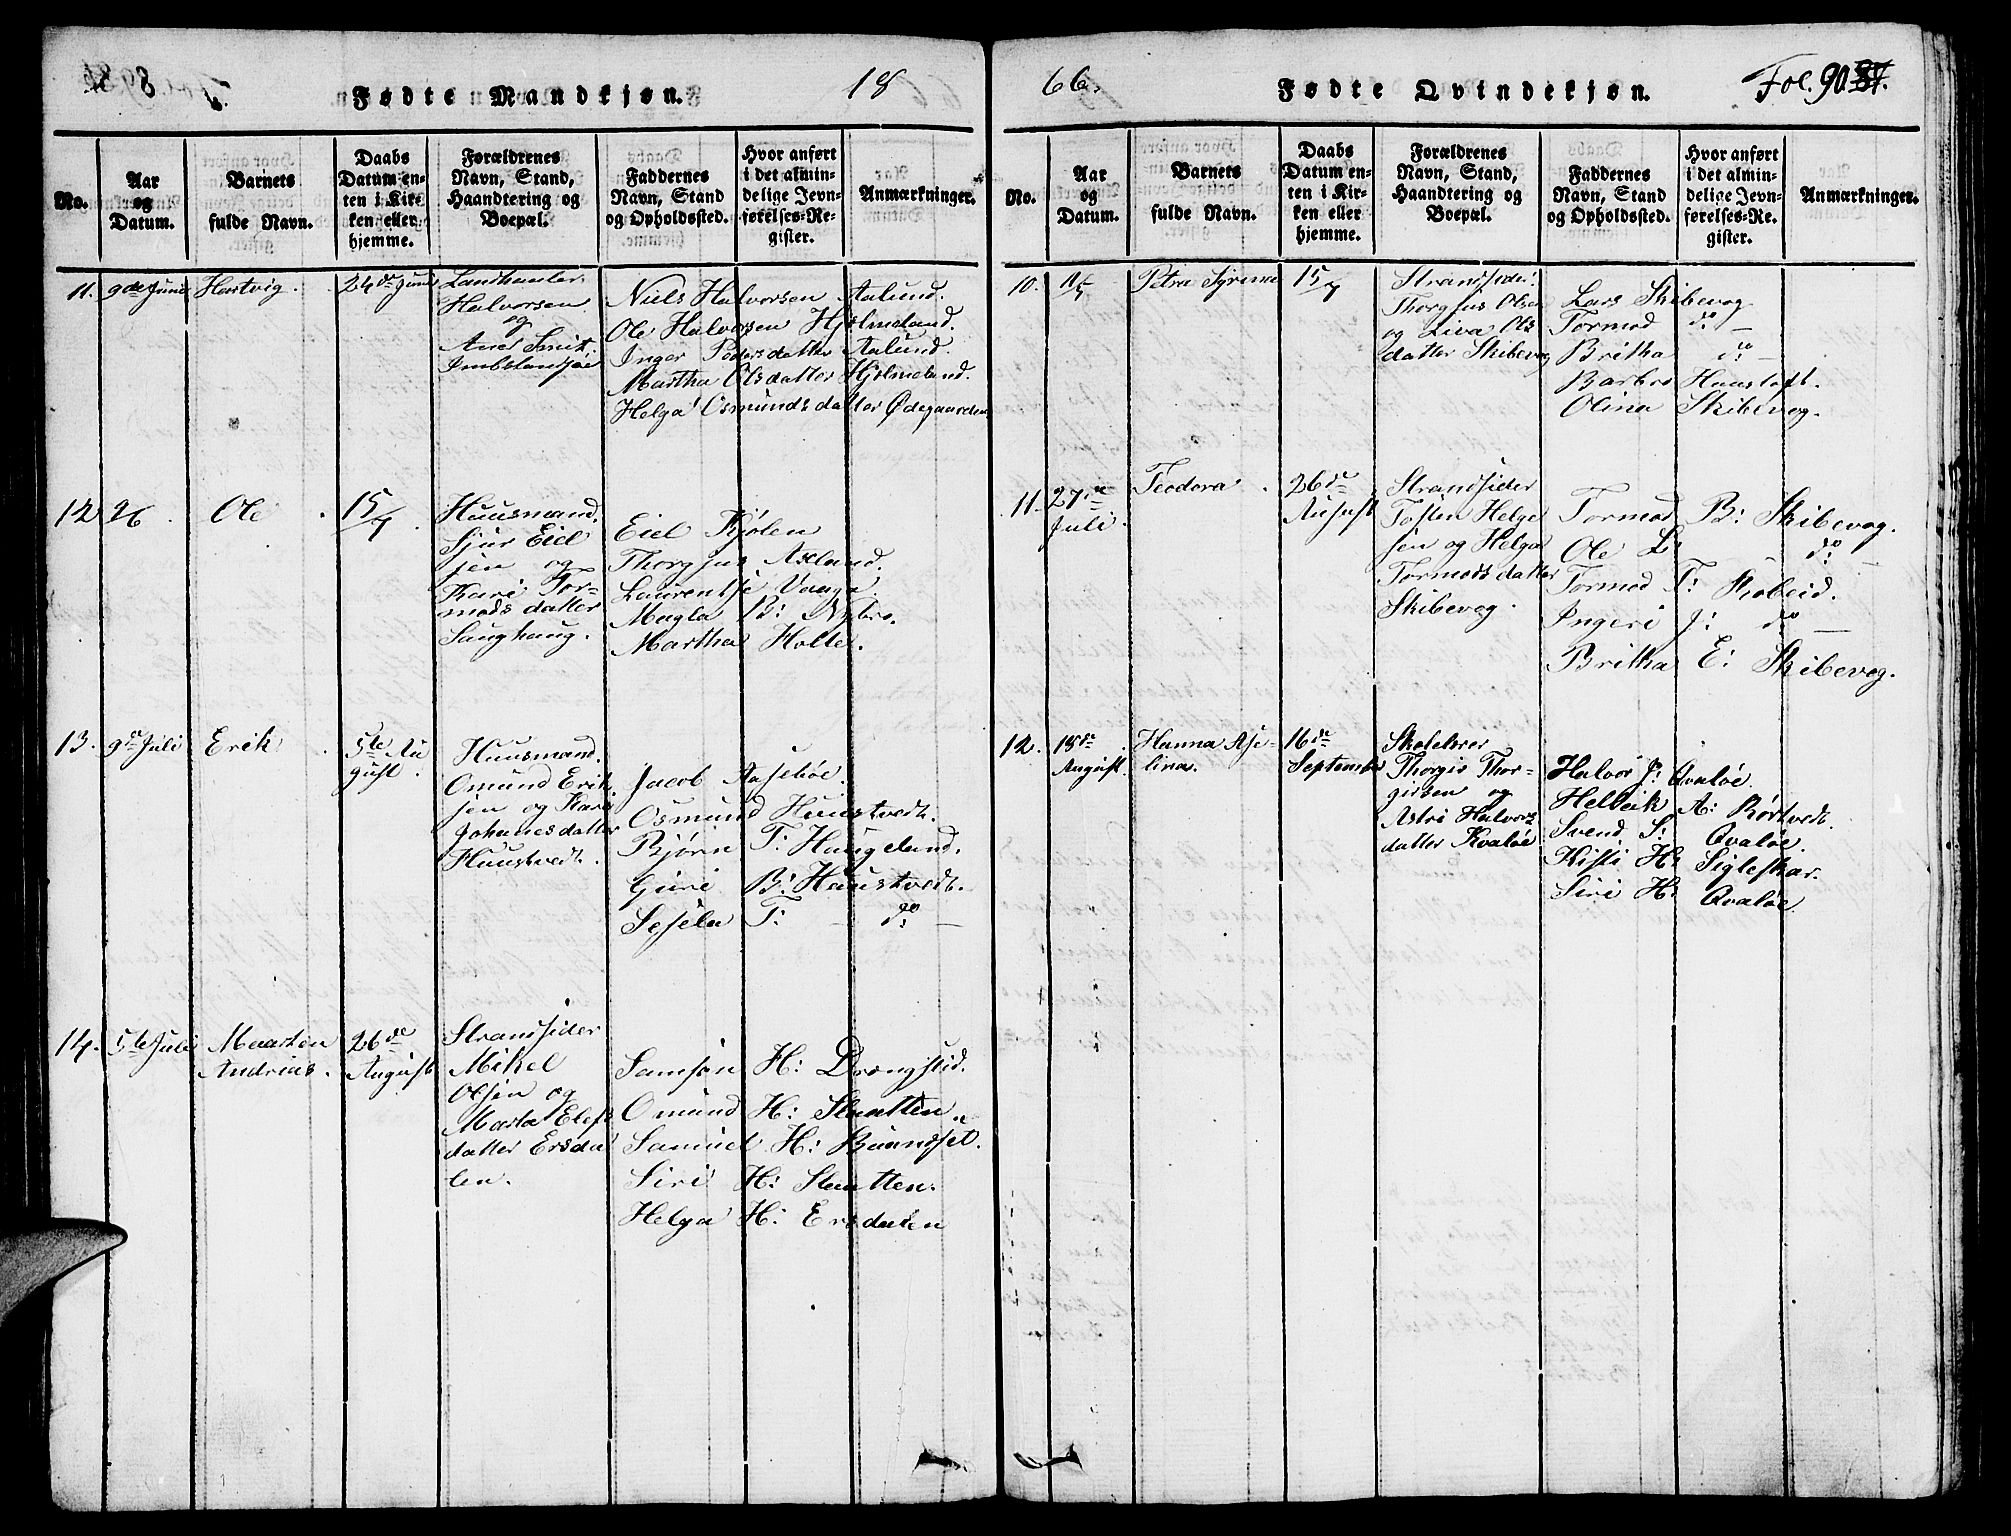 Fødte Mandkjøn. 18
No.
Aar og Datum.
Barnets fulde Navn.
Daabs Datum enten i Kirken eller hjemme.
Forældrenes Navn, Stand, Haandtering og Boepæl.
Faddernes Navn, Stand og Opholdssted.
Hvor anført i det almindelige Jevnførelses-Register.
Anmærkninger.
11. 9de Juni Hartvig. 24de Juni
Halvorsen
og
Niels Halvorsen Aalund.
Ole Halvorsen Hjelmeland.
Inger Pedersdatter Aalund.
Martha Olsdatter Hjelmeland.
Helga Osmundsdatter Ødegaarden
12 26. Ole. 15/7.
Huusmand.
Sjur Eiel
sen og
Kari Tor=
modsdatter
Saughaug.
Eiel Kjølen
Thorgjus Axeland.
Laurentse Vaaga.
Magla B: Nybro.
Martha Holte.
13. 9de Juli Erik. 5te Au
gust.
Huusmand.
Omund Erik
sen og Kari
Johanesdatter
Huustvedt.
Jacob Aasebøe.
Osmund Huustvedt.
Bjørn T: Haugeland.
Guri B: Haustvedt.
Sesela T: — do —
14. 5te Juli Maarten
Andrias. 26de
August
Strandsider
Mikel
Olsen og
Marta Elefs
datter Ersda
len.
Samson H: Drængstid.
Omund H: Slaatten.
Samuel H: Bundset.
Siri H: Slaatten.
Helga H: Ersdalen
66. Fødte Qvindekjøn. Fol. 90. 87.
No.
Aar og Datum.
Barnets fulde Navn.
Daabs Datum enten i Kirken eller hjemme.
Forældrenes Navn, Stand, Haandtering og Boepæl.
Faddernes Navn, Stand og Opholdssted.
Hvor anført i det almindelige Jevnførelses-Register.
Anmærkninger.
10. Petra Syrina 15/7
Strandsider
Thorgjus Olsen
og Liva Ols
datter Skibevog
Lars Skibevog
Tormod do —
Britha do —
Barbro
Olina Skibevog.
11. 27de
Juli. Teodora. 26de
August
Strandsider
Tosten Helge
sen og Helga
Tormodsdatter
Skibevog.
Tormod B: Skibevog.
Ole L — do —
Tormod T: Skobeid.
Ingeri J: do —
Britha E: Skibevog.
12. 18de
August. Hanna Ase=
lina. 16de
September
Skolelærer
Thorgis Thor=
gissen og
Astri Halvors
datter Kvaløe
Halvor J: Qvaløe.
Helleik A: Rørtvedt.
Svend S: Qvaløe.
Kisti H: Sigleskar.
Siri H: Qvaløe.